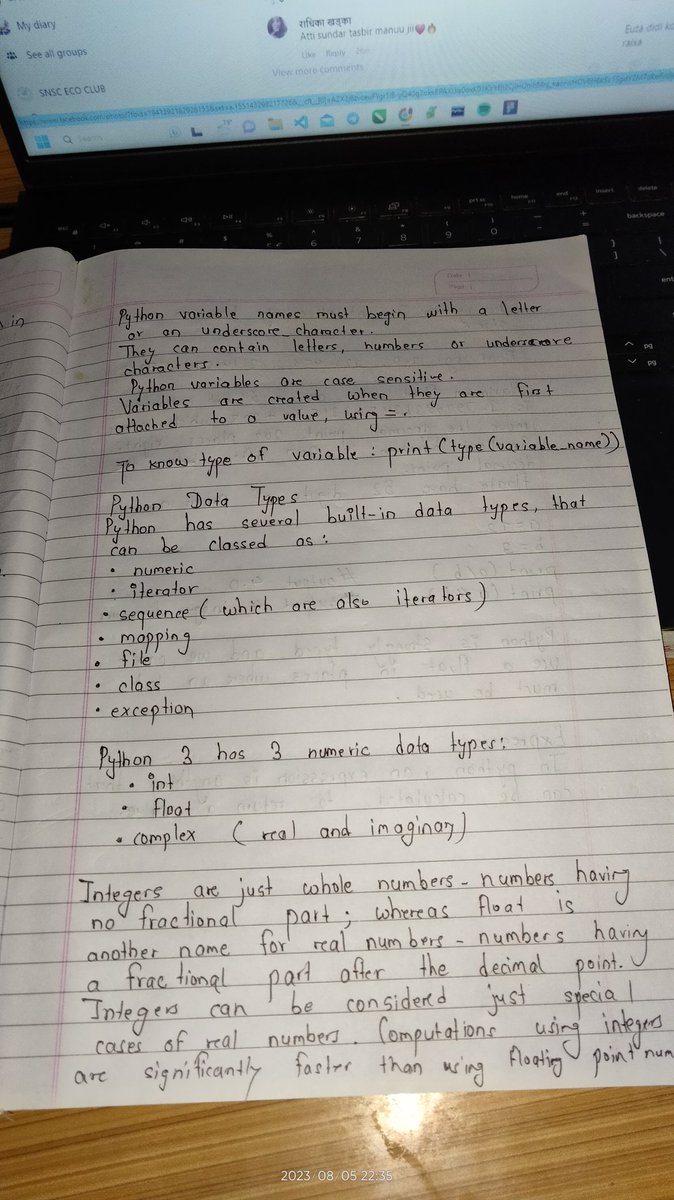 My diary
See all groups
SNSC ECO CLUB
राधिका खड्का
Atti sundar tasbir manuu jii💗🔥
Like Reply
View more comments
Euta didi
raixa
Search
prt sc
home
end
insert
delete
backspace
6
7
8
9
0
pg
pg
Date :
Page :
in
Python variable names must begin with a letter
or an underscore character.
They can contain letters, numbers or underscore
characters.
Python variables are case sensitive.
Variables are created when they are first
attached to a value, using =.
To know type of variable : print(type(variable_name))
Python Data Types
Python has several built-in data types, that
can be classed as:
• numeric
• iterator
• sequence ( which are also iterators)
• mapping
• file
• class
• exception
Python 3 has 3 numeric data types:
• int
• float
• complex ( real and imaginary)
Integers are just whole numbers - numbers having
no fractional part ; whereas float is
another name for real numbers - numbers having
a fractional part after the decimal point.
Integers can be considered just special
cases of real numbers. Computations using integers
are significantly faster than using floating point num
2023/08/05 22:35